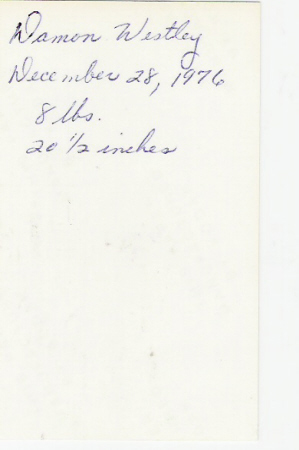 Damon Westley
December 28, 1976
8 lbs.
20 1/2 inches